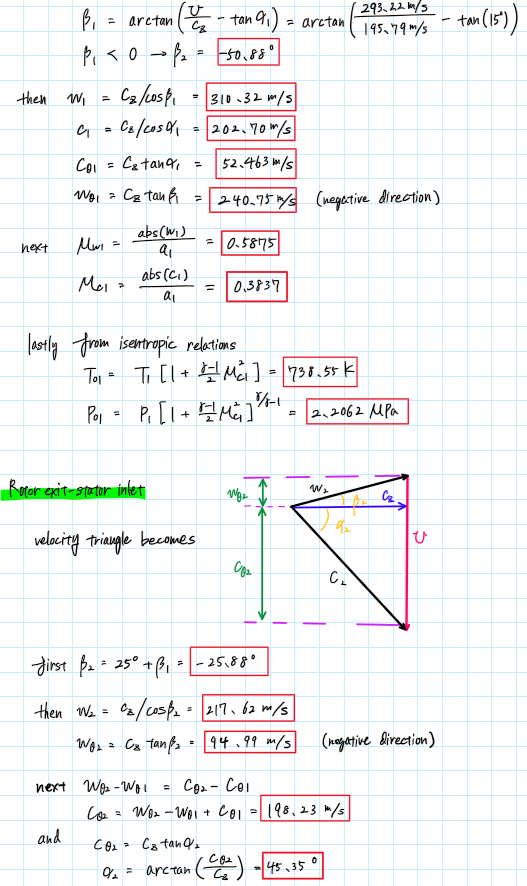 β₁ = arctan(U/C₃ - tan α₁) = arctan(293.22 m/s / 195.79 m/s - tan(15°))
β₁ < 0 → β₂ = -50.88°
then W₁ = C₃/cosβ₁ = 310.32 m/s
C₁ = C₃/cosα₁ = 202.70 m/s
C_θ1 = C₃ tanα₁ = 52.463 m/s
W_θ1 = C₃ tanβ₁ = 240.75 m/s (negative direction)
next M_w1 = abs(W₁)/a₁ = 0.5875
M_c1 = abs(C₁)/a₁ = 0.3837
lastly from isentropic relations
T₀₁ = T₁ [1 + γ-1/2 M²_c1] = 738.55 K
P₀₁ = P₁ [1 + γ-1/2 M²_c1]^γ/γ-1 = 2.2062 MPa
Rotor exit-stator inlet
velocity triangle becomes
W_θ2
W₂
β₂
C₃
α₂
U
C_θ2
C₂
first β₂ = 25° + β₁ = -25.88°
then W₂ = C₃/cosβ₂ = 217.62 m/s
W_θ2 = C₃ tanβ₂ = 94.99 m/s (negative direction)
next W_θ2 - W_θ1 = C_θ2 - C_θ1
C_θ2 = W_θ2 - W_θ1 + C_θ1 = 198.23 m/s
and C_θ2 = C₃ tanα₂
α₂ = arctan(C_θ2/C₃) = 45.35°